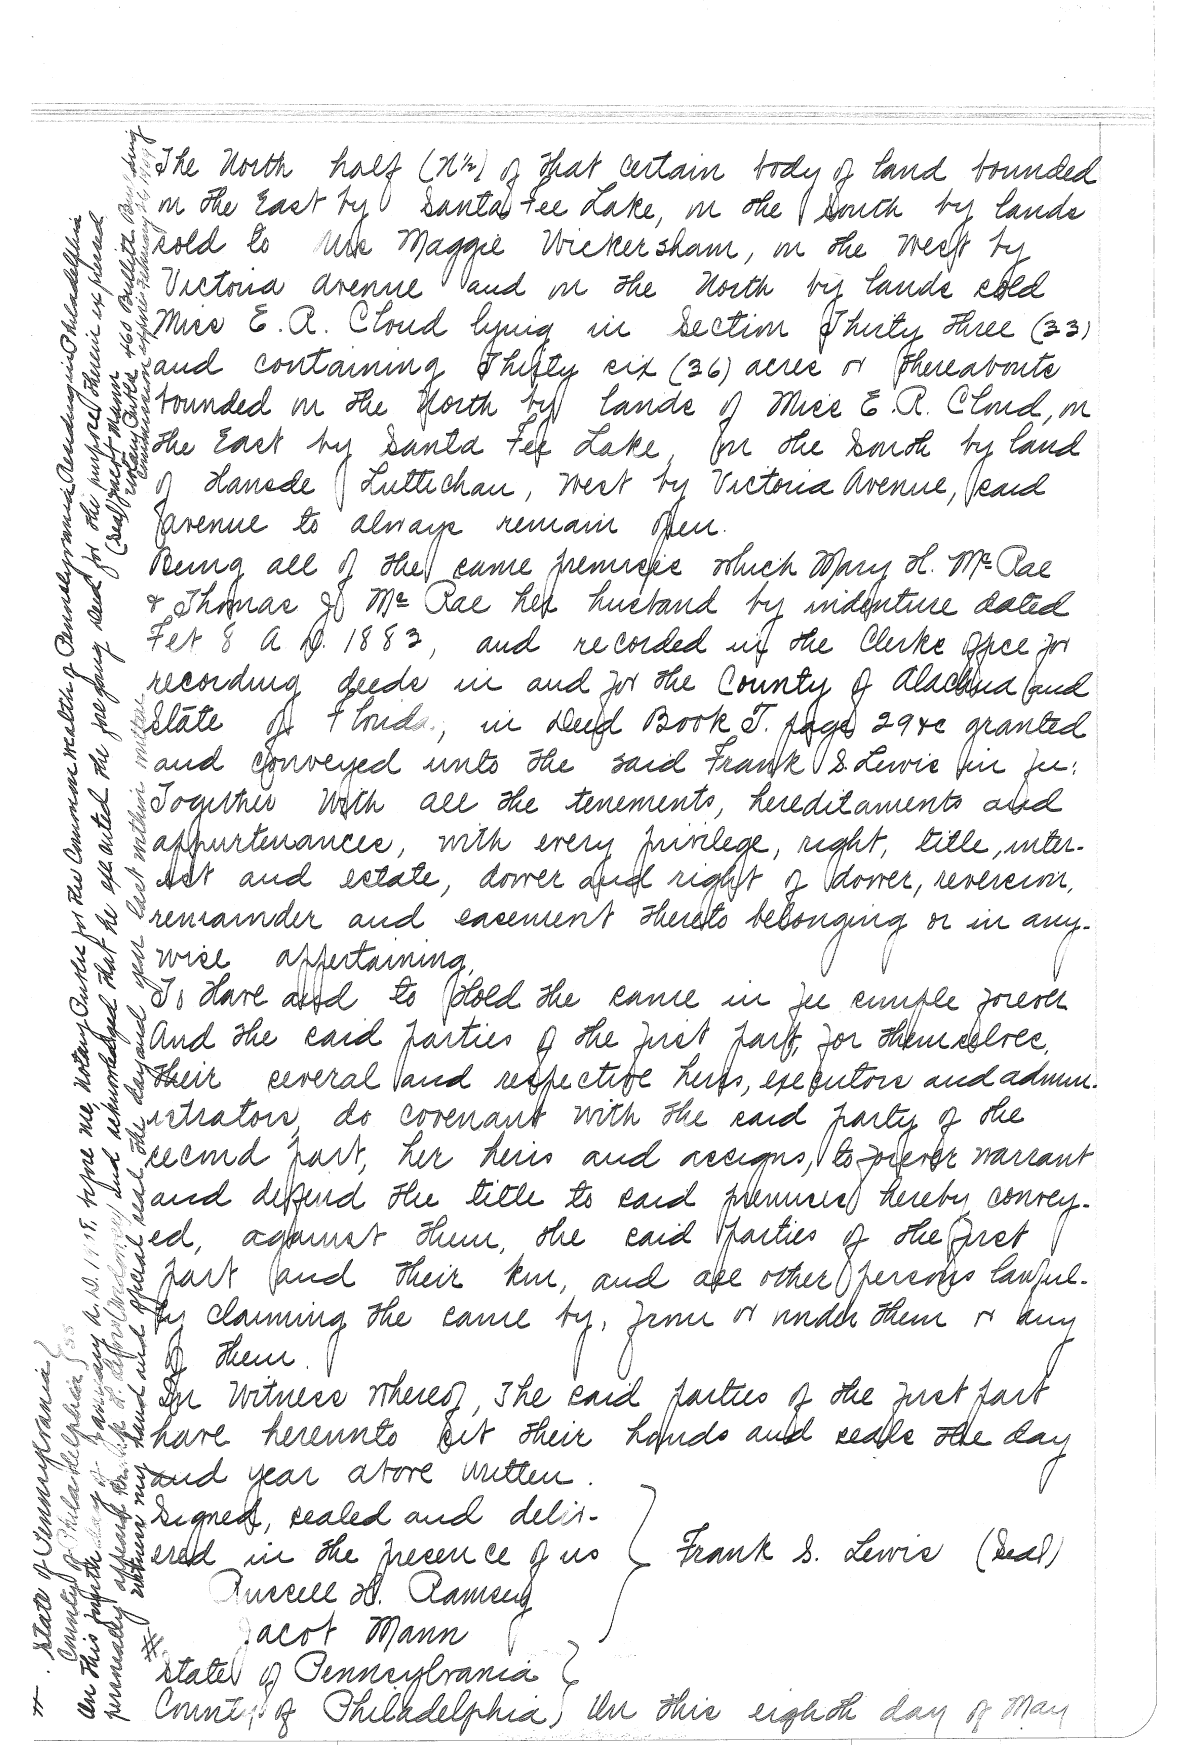 The North half (N½) of that certain body of land bounded
on the East by Santa Fee Lake, on the South by lands
sold to Mrs Maggie Wickersham, on the West by
Victoria Avenue and on the North by lands sold
Miss E. R. Cloud lying in Section Thirty three (33)
and containing Thirty six (36) acres or thereabouts
bounded on the North by lands of Miss E. R. Cloud, on
the East by Santa Fee Lake, on the South by land
of Hansde Luttichau, West by Victoria Avenue, said
avenue to always remain open.
Being all of the same premises which Mary H. McRae
& Thomas J McRae her husband by indenture dated
Feb 8 A.D. 1883, and recorded in the Clerks office for
recording deeds in and for the County of Alachua and
State of Florida, in Deed Book T. page 29&c granted
and conveyed unto the said Frank S. Lewis in fee:
Together with all the tenements, hereditaments and
appurtenances, with every privilege, right, title, inter-
est and estate, dower and right of dower, reversion,
remainder and easement thereto belonging or in any-
wise appertaining,
To Have and to Hold the same in fee simple forever
And the said parties of the first part, for themselves,
their several and respective heirs, executors and admin-
istrators, do covenant with the said party of the
second part, her heirs and assigns, to forever warrant
and defend the title to said premises hereby convey-
ed, against them, the said parties of the first
part and their kin, and all other persons lawful-
ly claiming the same by, from or under them or any
of them.
In Witness Whereof, The said parties of the first part
have hereunto set their hands and seals the day
and year above written.
Signed, sealed and deliv-
ered in the presence of us } Frank S. Lewis (Seal)
Russell H. Ramsey
Jacob Mann
State of Pennsylvania }
County of Philadelphia } On this eighth day of May
# State of Pennsylvania }
County of Philadelphia } SS
On this fourth day of January A.D. before me, Notary Public for the Commonwealth of Pennsylvania Residing in Philadelphia
personally appeared and acknowledged that he executed the foregoing deed for the purposes therein expressed
# witness my hand and official seal the day and year last within written (Seal) Jacob Mann
Notary Public 460 Bullitt Building
Commission expires February